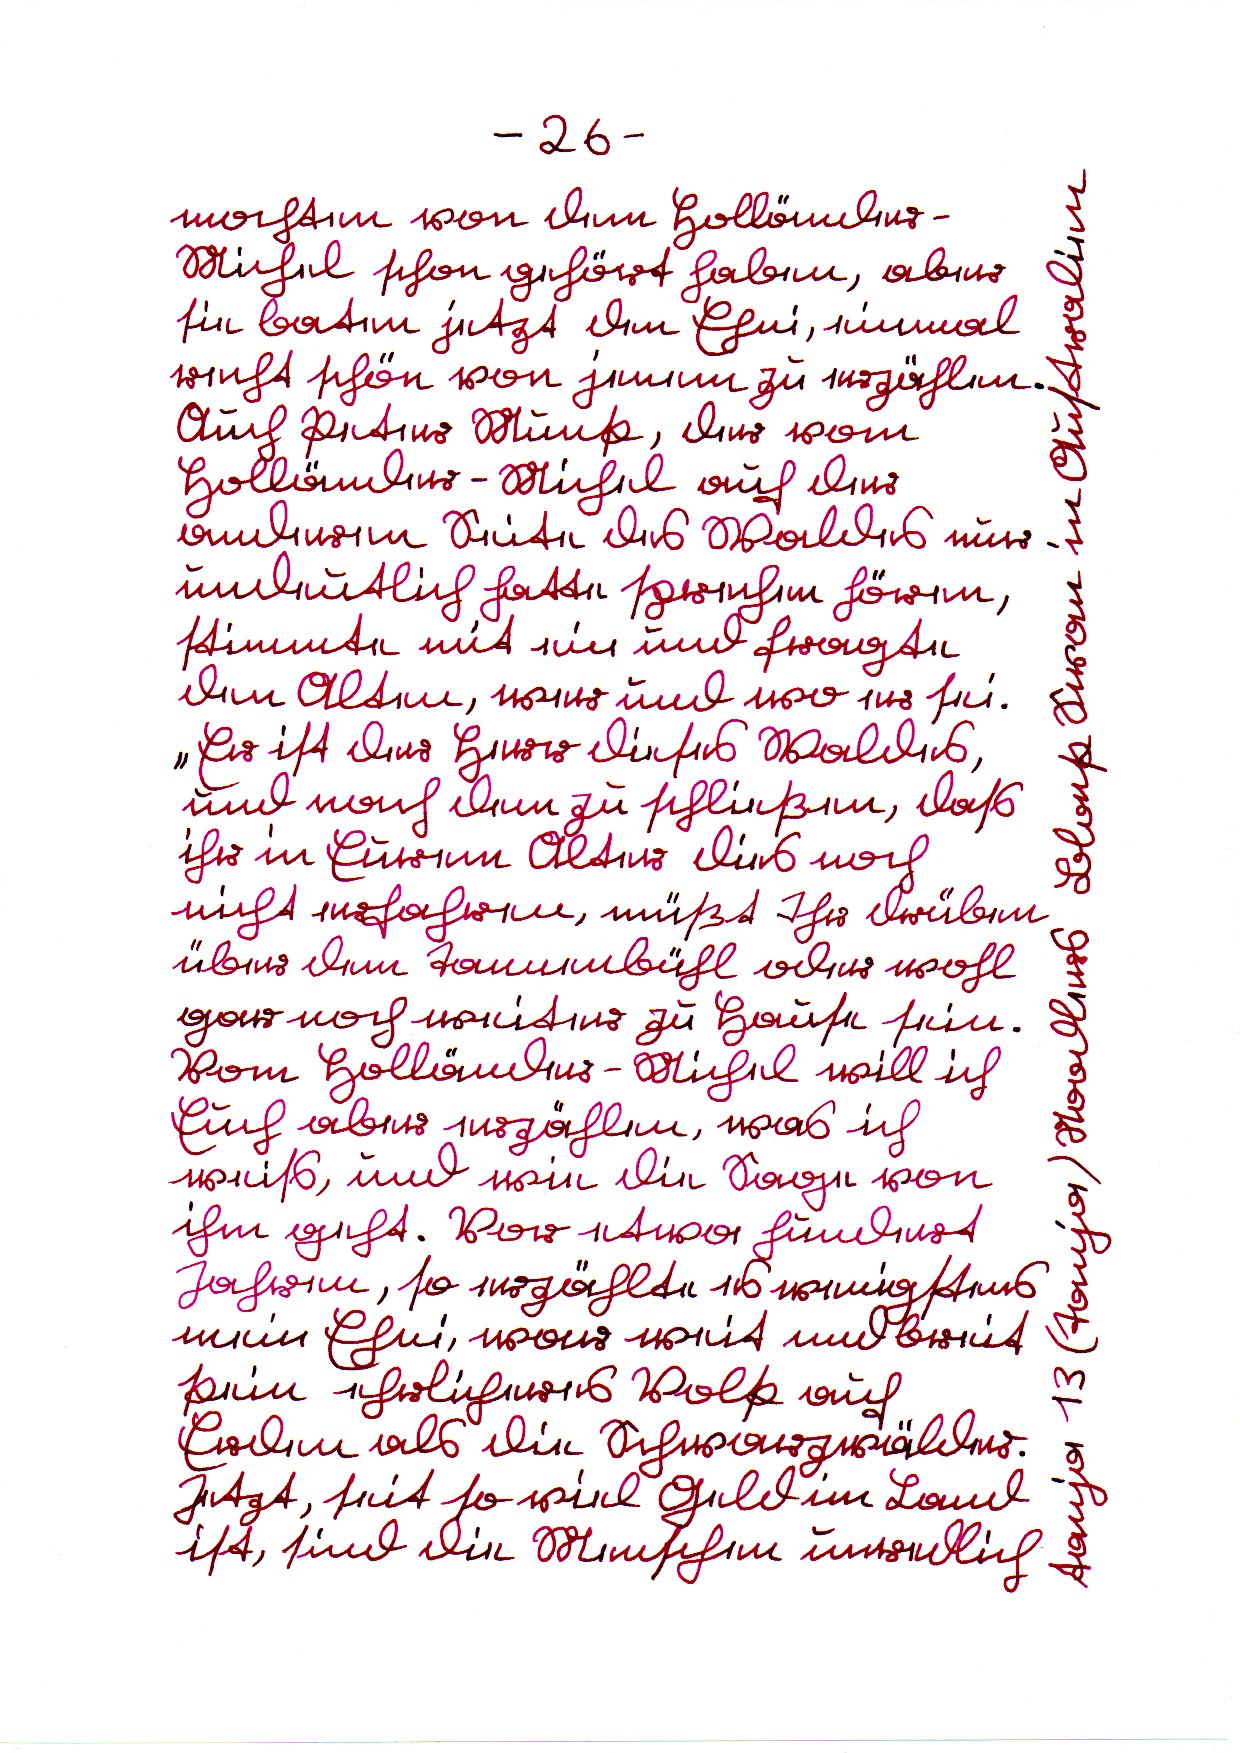 - 26 -
mochten von dem Holländer-
Michel schon gehört haben, aber
sie baten jetzt den Ehni, einmal
recht schön von jenem zu erzählen.
Auch Peter Munk, der vom
Holländer-Michel auf der
anderen Seite des Waldes nur
undeutlich hatte sprechen hören,
stimmte mit ein und fragte
den Alten, wer und wo er sei.
„Er ist der Herr dieses Waldes,
und nach dem zu schließen, daß
ihr in Eurem Alter dies noch
nicht erfahren, müßt Ihr drüben
über dem Tannenbühl oder wohl
gar noch weiter zu Hause sein.
Vom Holländer-Michel will ich
Euch aber erzählen, was ich
weiß, und wie die Sage von
ihm geht. Vor etwa hundert
Jahren, so erzählte es wenigstens
mein Ehni, war weit und breit
kein ehrlicheres Volk auf
Erden als die Schwarzwälder.
Jetzt, seit so viel Geld im Land
ist, sind die Menschen unredlich
Tanja 13 (Tanja) in Australien